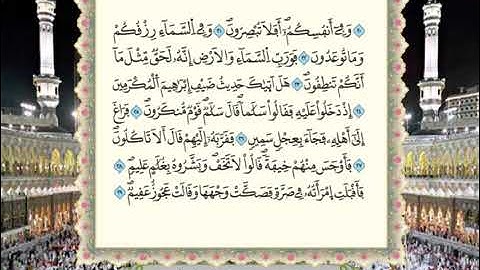 ۝٢٠ وَفِي أَنفُسِكُمْ أَفَلَا تُبْصِرُونَ ۝٢١ وَفِي السَّمَاءِ رِزْقُكُمْ
وَمَا تُوعَدُونَ ۝٢٢ فَوَرَبِّ السَّمَاءِ وَالْأَرْضِ إِنَّهُ لَحَقٌّ مِّثْلَ مَا
أَنَّكُمْ تَنطِقُونَ ۝٢٣ هَلْ أَتَاكَ حَدِيثُ ضَيْفِ إِبْرَاهِيمَ الْمُكْرَمِينَ
۝٢٤ إِذْ دَخَلُوا عَلَيْهِ فَقَالُوا سَلَامًا قَالَ سَلَامٌ قَوْمٌ مُّنكَرُونَ ۝٢٥ فَرَاغَ
إِلَى أَهْلِهِ فَجَاءَ بِعِجْلٍ سَمِينٍ ۝٢٦ فَقَرَّبَهُ إِلَيْهِمْ قَالَ أَلَا تَأْكُلُونَ
۝٢٧ فَأَوْجَسَ مِنْهُمْ خِيفَةً قَالُوا لَا تَخَفْ وَبَشَّرُوهُ بِغُلَامٍ عَلِيمٍ ۝٢٨
فَأَقْبَلَتِ امْرَأَتُهُ فِي صَرَّةٍ فَصَكَّتْ وَجْهَهَا وَقَالَتْ عَجُوزٌ عَقِيمٌ ۝٢٩